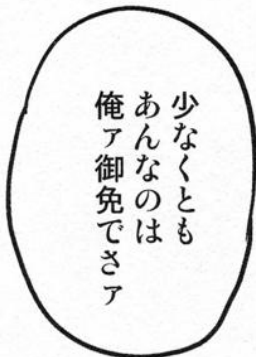 少なくとも
あんなのは
俺ァ御免でさァ